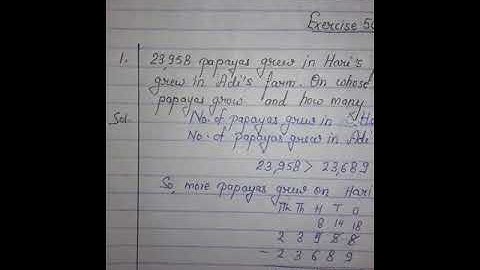 Exercise 5
1. 23,958 papayas grew in Hari's
grew in Adi's farm. On whose
papayas grow and how many
Sol. No. of papayas grew in Ha
No. of papayas grew in Adi
23,958 > 23,689
So, more papayas grew on Hari
Th Th H T O
8 14 18
2 3 9 5 8
- 2 3 6 8 9